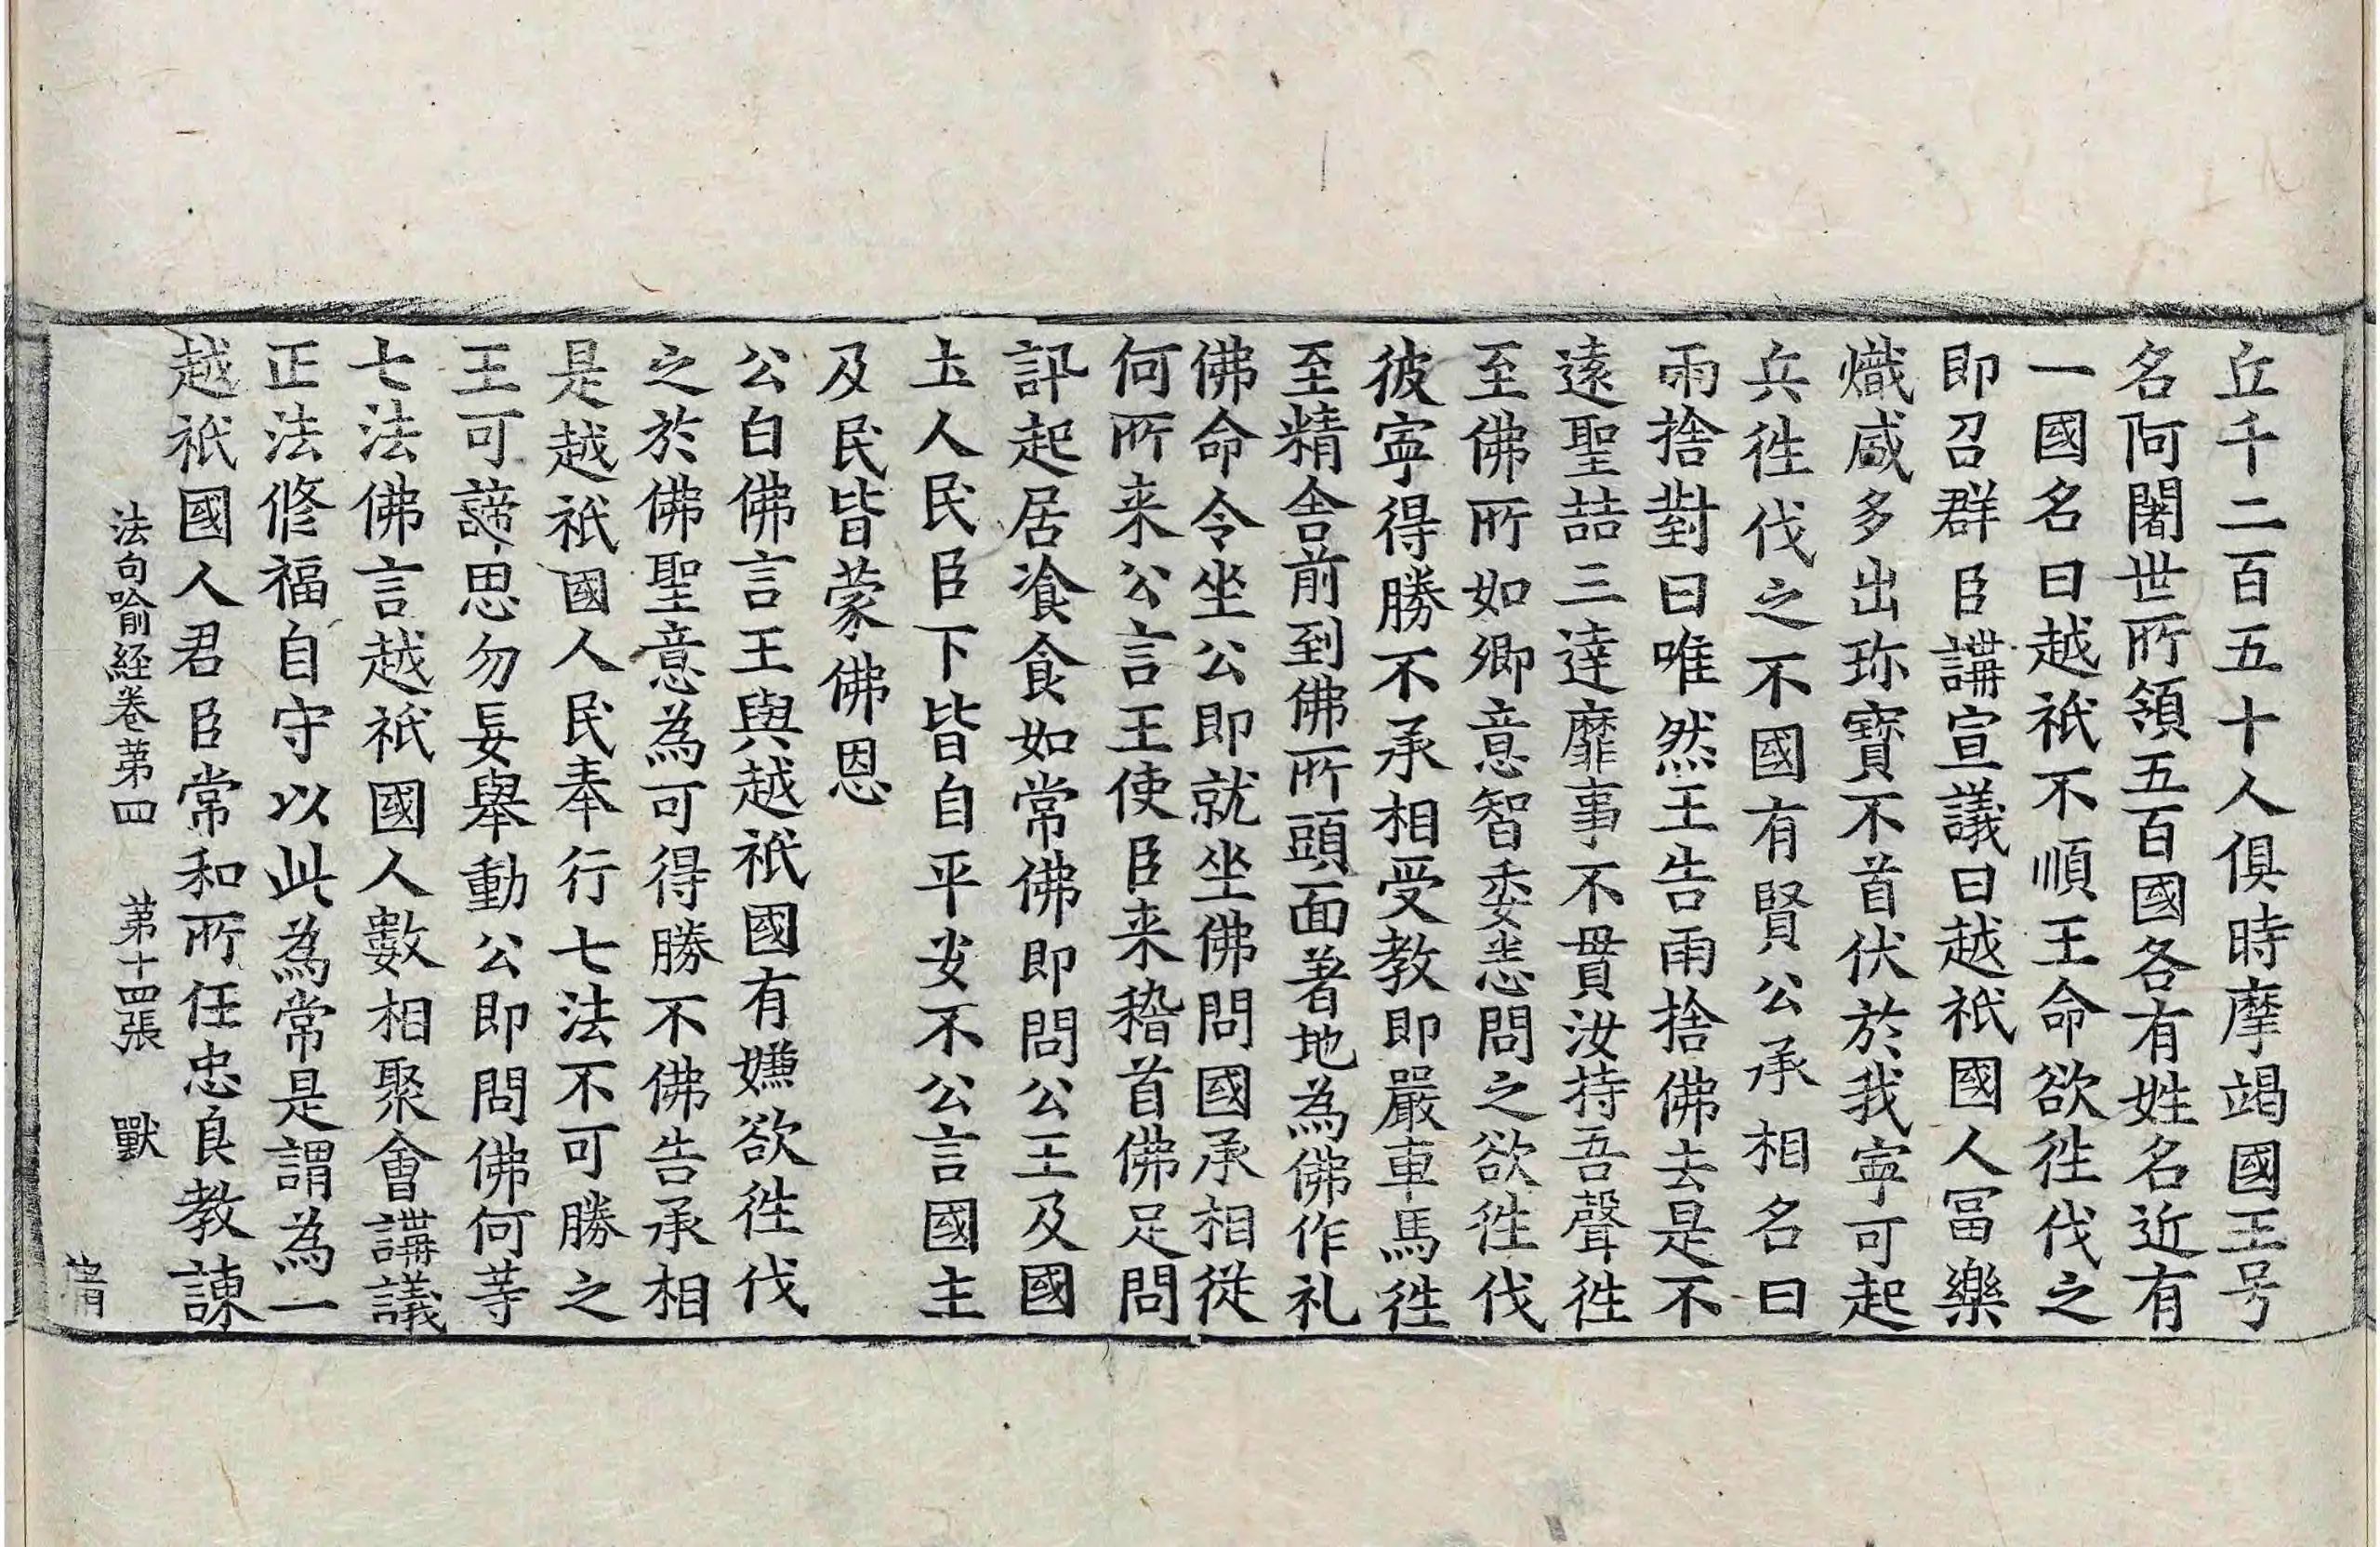 丘千二百五十人俱時摩竭國王号
名阿闍世所領五百國各有姓名近有
一國名曰越祇不順王命欲徃伐之
即召群臣講宣議曰越祇國人冨樂
熾咸多出珎寶不首伏於我寧可起
兵徃伐之不國有賢公承相名曰
雨捨對曰唯然王告雨捨佛去是不
遠聖喆三達靡事不貫汝持吾聲徃
至佛所如卿意智委悉問之欲徃伐
彼寧得勝不承相受教即嚴車馬徃
至精舎前到佛所頭面著地為佛作礼
佛命令坐公即就坐佛問國承相従
何所来公言王使臣来稽首佛足問
訊起居飡食如常佛即問公王及國
土人民臣下皆自平安不公言國主
及民皆蒙佛恩
公白佛言王與越祇國有嫌欲徃伐
之於佛聖意為可得勝不佛告承相
是越祇國人民奉行七法不可勝之
王可諦思勿妄舉動公即問佛何等
七法佛言越祇國人數相聚會講議
正法修福自守以此為常是謂為一
越祇國人君臣常和所任忠良教諫
法句喻経卷第四 第十四張 獸